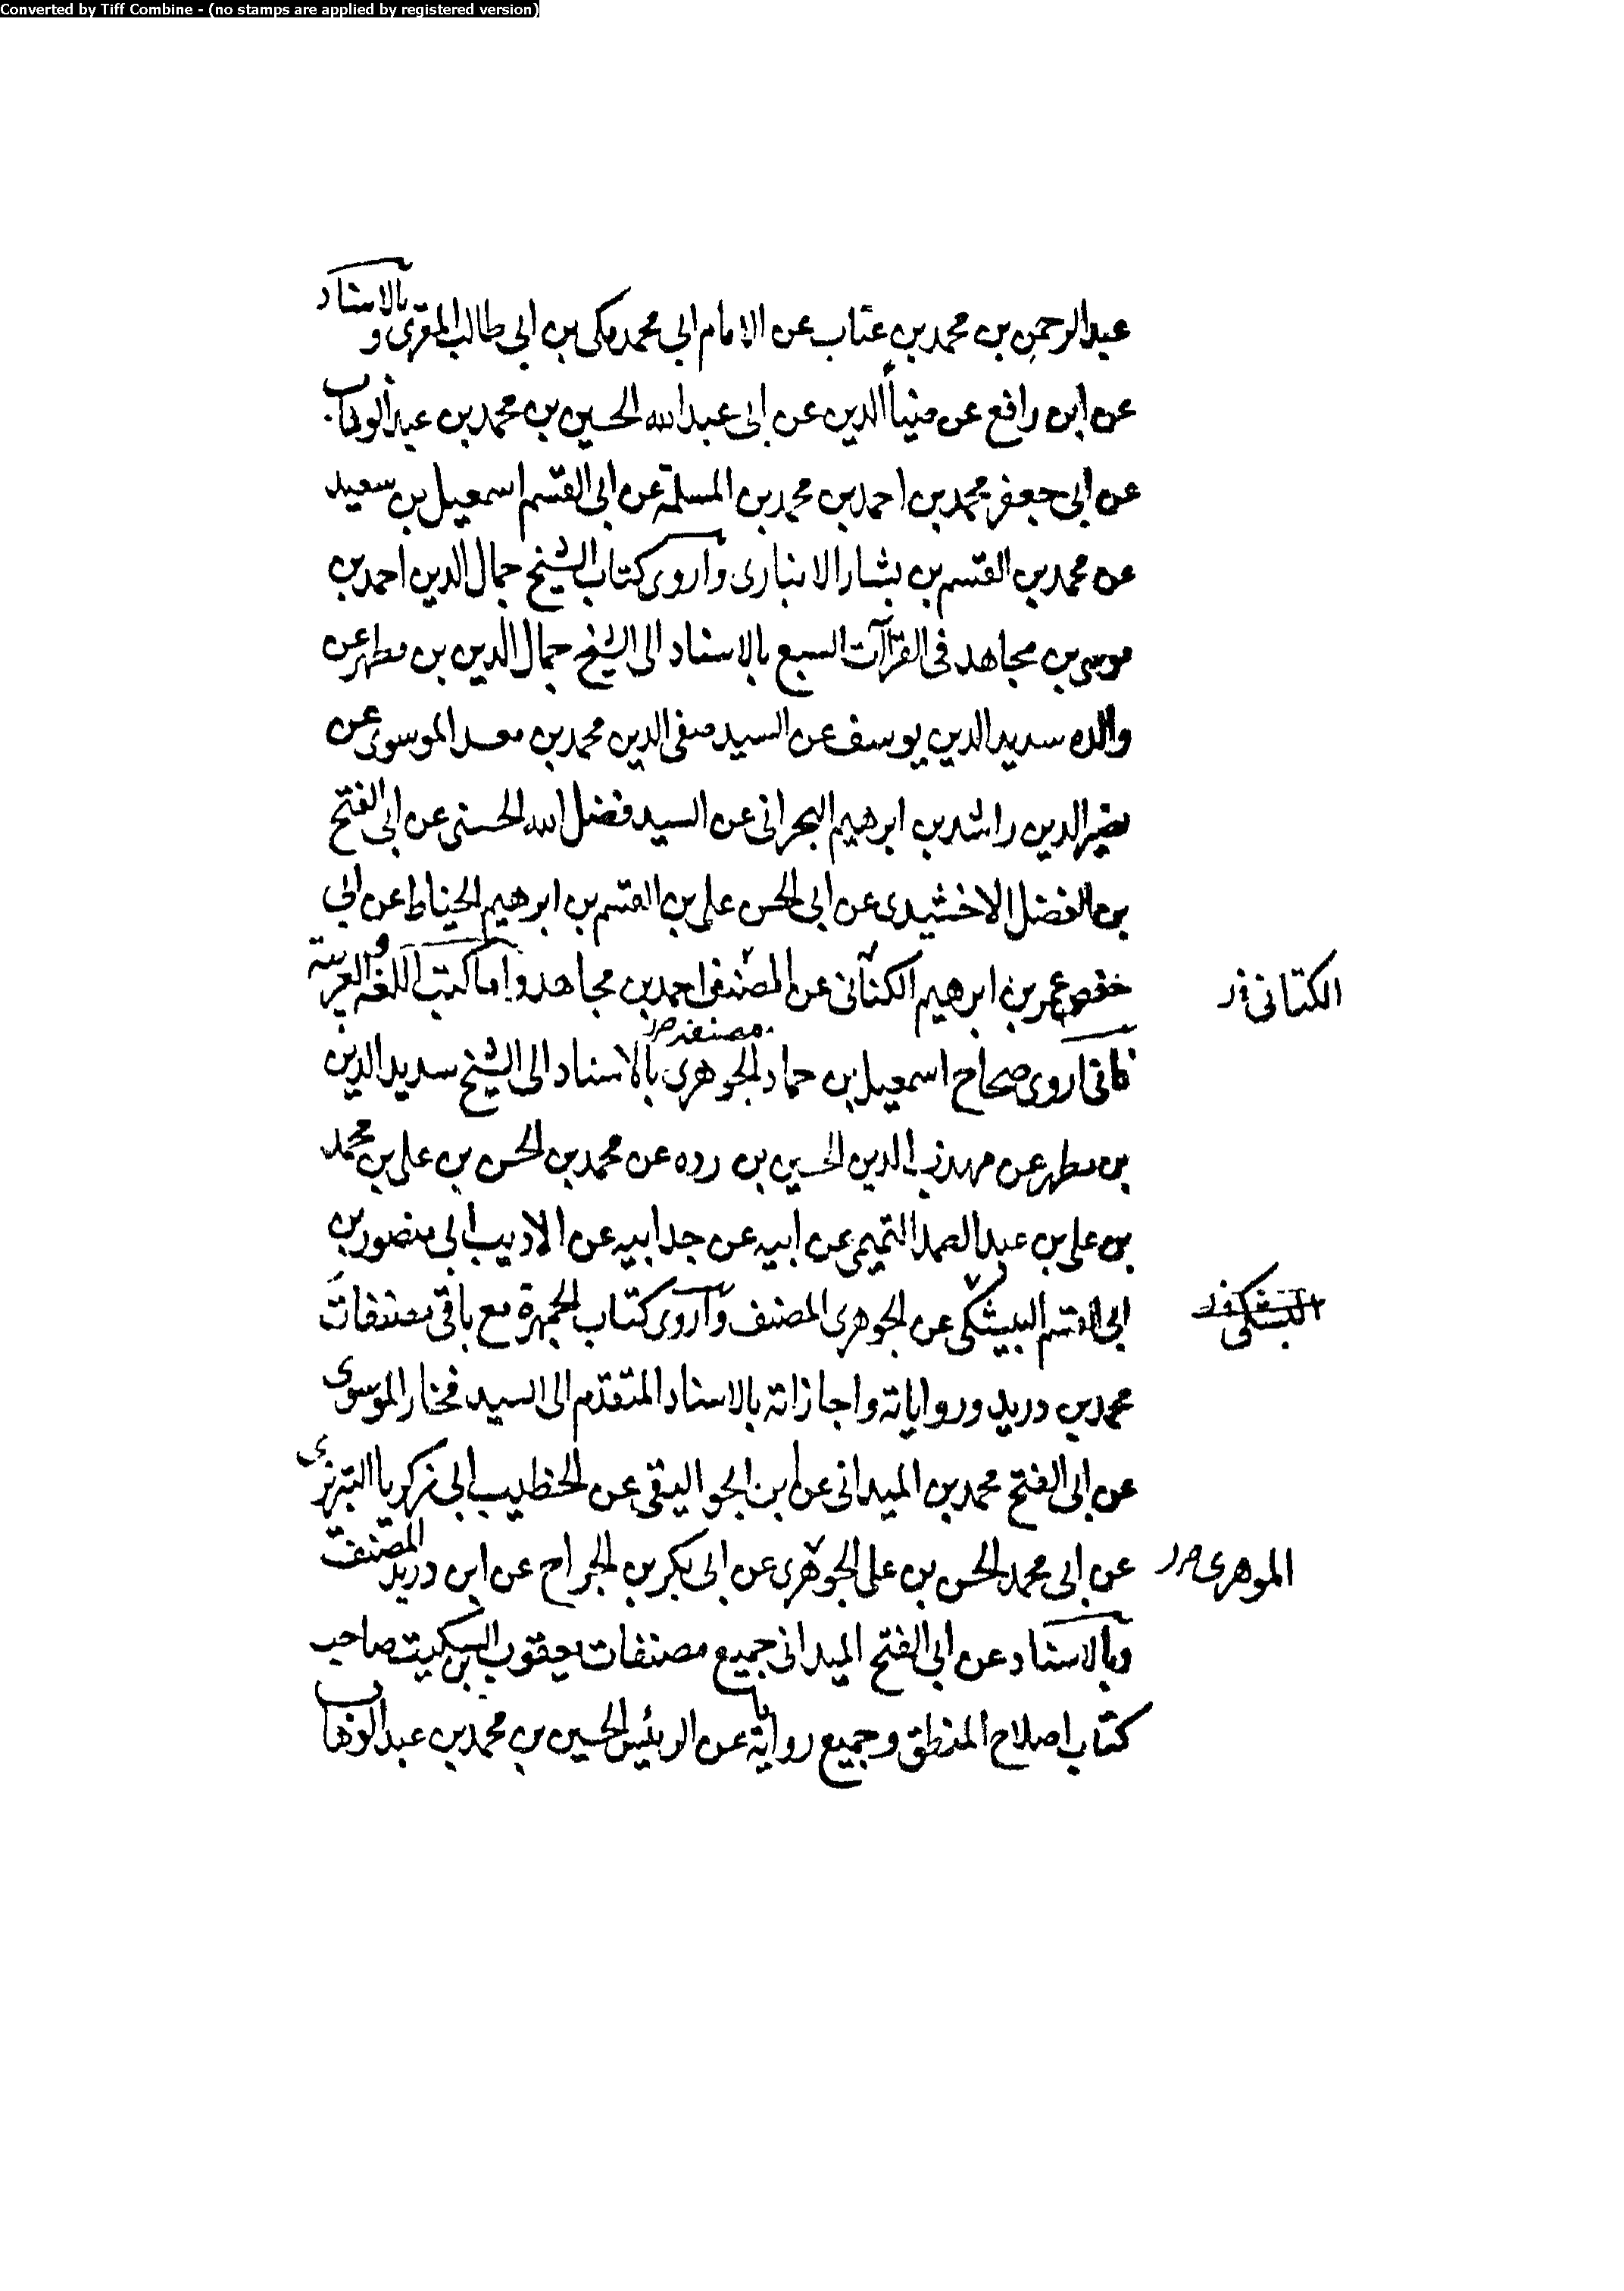 Converted by Tiff Combine - (no stamps are applied by registered version)
عبدالرحمن بن محمد بن عتاب عن الامام ابى محمد مكى بن ابى طالب المقرى و بالاسناد
عن ابن رافع عن ضياأالدين عن ابى عبدالله الحسين بن محمد بن عبدالوهاب
عن ابى جعفر محمد بن احمد بن محمد بن المسلمة عن ابى القسم اسمعيل بن سعيد
عن محمد بن القسم بن بشار الانبارى واروى كتاب الشيخ جمال الدين احمد بن
موسى بن مجاهد فى القرآآت السبع بالاسناد الى الشيخ جمال الدين بن مطهر عن
والده سديد الدين يوسف عن السيد صفى الدين محمد بن معد الموسوى عن
نصير الدين راشد بن ابرهيم البحرانى عن السيد فضل الله الحسنى عن ابى الفتح
بن الفضل الاخشيدى عن ابى الحسن على بن القسم بن ابرهيم الخياط عن ابى
حفص عمر بن ابرهيم الكتانى عن المصنف احمد بن مجاهد واما كتب اللغة والعربية
الكتانى
فانى اروى صحاح اسمعيل بن حماد الجوهرى بالاسناد الى الشيخ سديد الدين
مصنفه
بن مطهر عن مهذب الدين الحسين بن رده عن محمد بن الحسن بن على بن محمد
بن على بن عبد الصمد التميمى عن ابيه عن جد ابيه عن الاديب ابى منصور بن
ابى القسم البيشكى عن الجوهرى المصنف وآروى كتاب الجمهرة مع باقى مصنفات
محمد بن دريد ورواياته واجازاته بالاسناد المتقدم الى السيد فخار الموسوى
عن ابى الفتح محمد بن الميدانى عن ابن الجواليقى عن الخطيب ابى زكريا التبريزى
عن ابى محمد الحسن بن على الجوهرى عن ابى بكر بن الجراح عن ابن دريد المصنف
الموهرى
وبالاسناد عن ابى الفتح الميدانى جميع مصنفات يعقوب بن السكيت صاحب
كتاب اصلاح المنطق وجميع رواياته عن الرئيس الحسين بن محمد بن عبدالوهاب